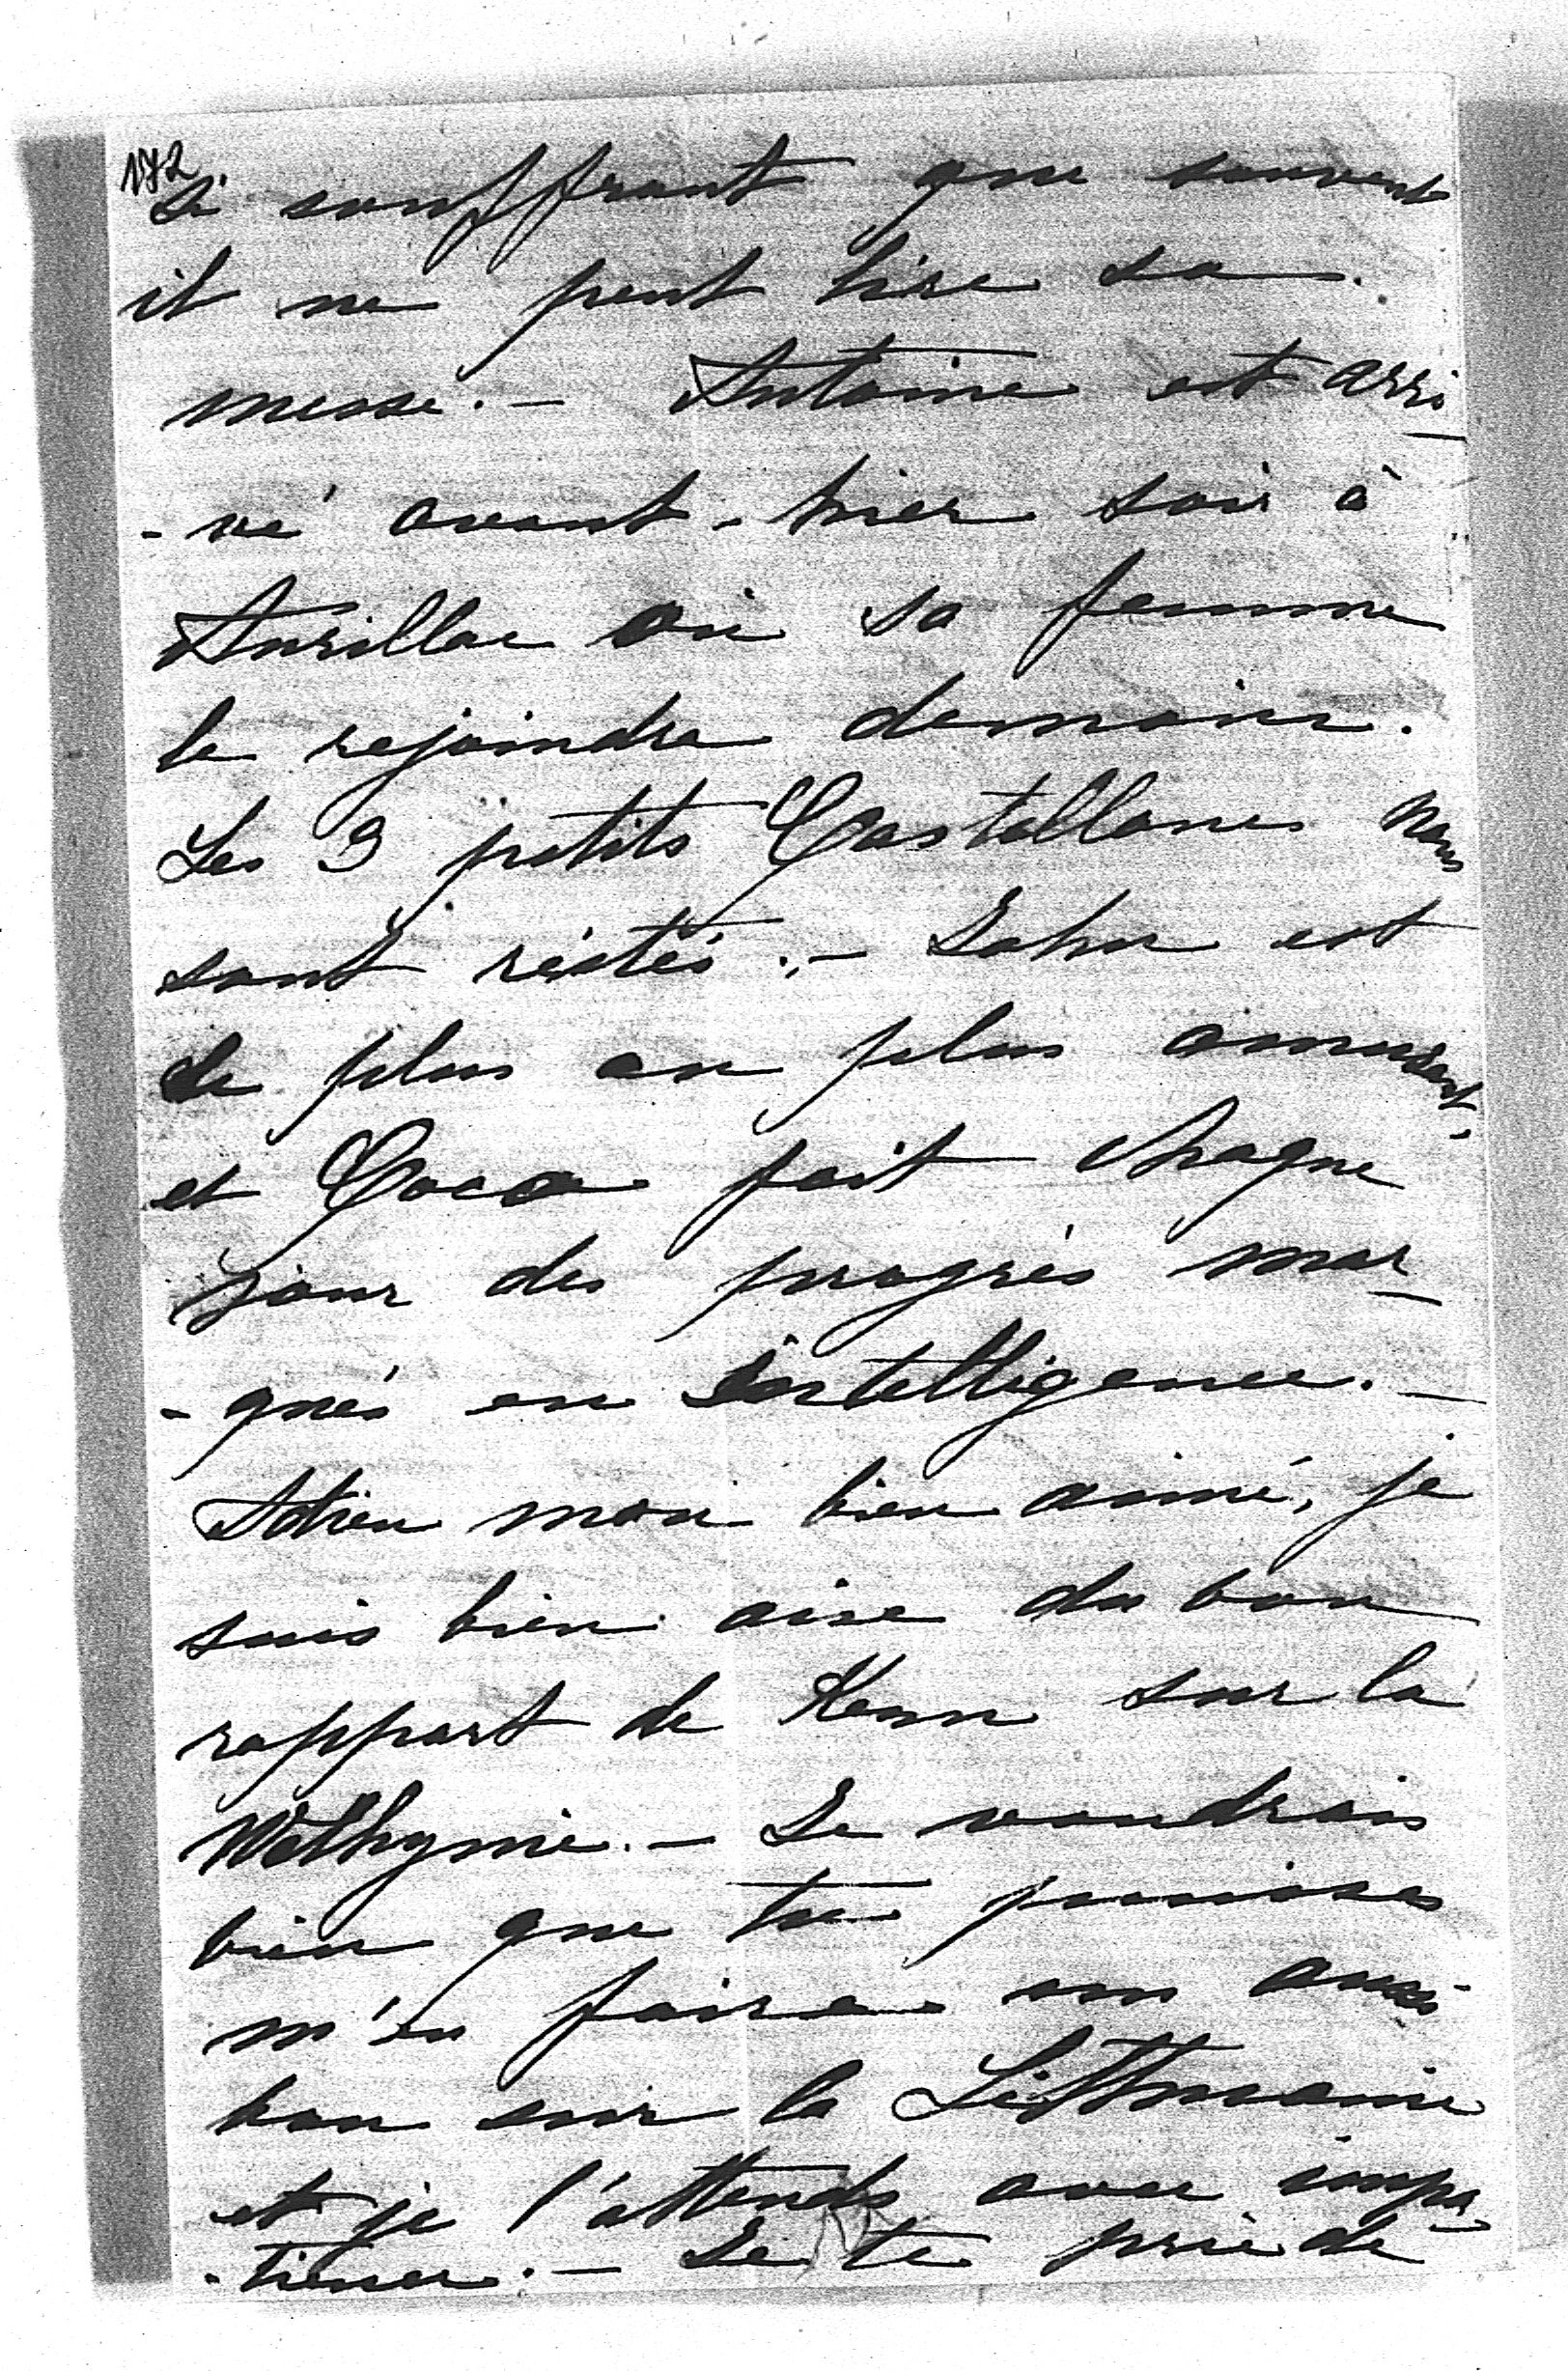 172
si souffrant que souvent
il ne peut dire sa
messe. — Antoine est arri-
-vé avant-hier soir à
Aurillac où sa femme
le rejoindra demain.
Les 3 petits Castellane nous
sont réstés. — John est
de plus en plus amusant,
et Coco fait chaque
jour des progrès mar-
-qués en intelligence. —
Adieu mon bien aimé, je
suis bien aise du bon
rapport de Kenn sur la
Méthymie. — Je voudrais
bien que tu puisses
m'en faire un aussi
bon sur la
et je l'attends avec impa-
-tience. — Je te prie de